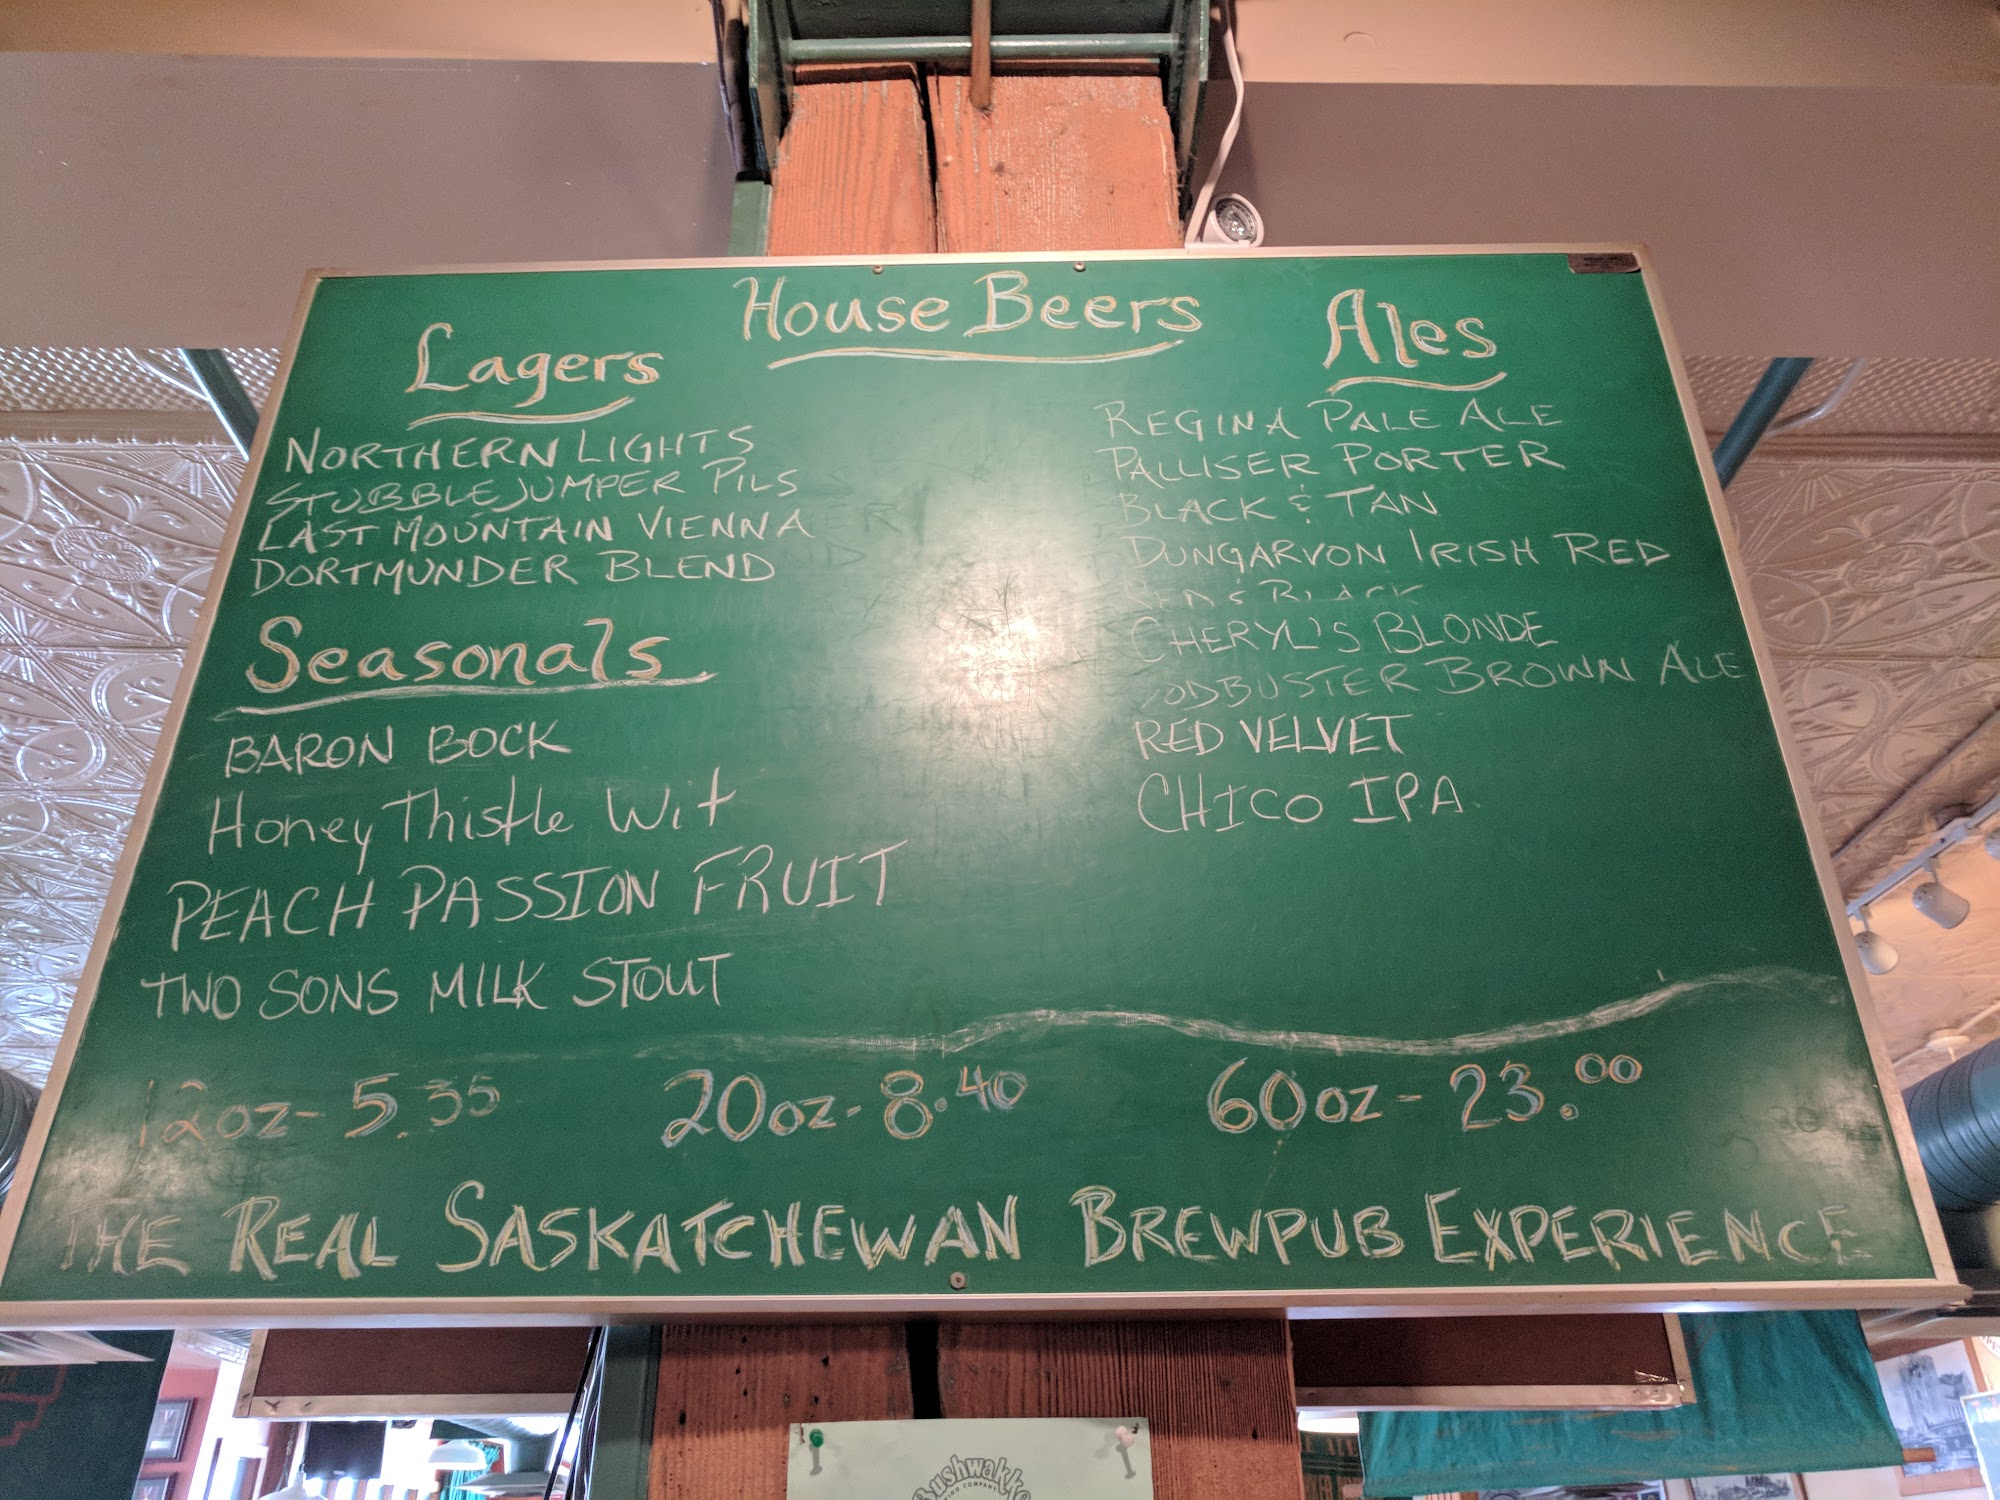 House Beers
Lagers
NORTHERN LIGHTS
STUBBLEJUMPER PILS
LAST MOUNTAIN VIENNA
DORTMUNDER BLEND
Seasonals
BARON BOCK
Honey Thistle Wit
PEACH PASSION FRUIT
TWO SONS MILK STOUT
Ales
REGINA PALE ALE
PALLISER PORTER
BLACK & TAN
DUNGARVON IRISH RED
CHERYL'S BLONDE
BROWN ALE
RED VELVET
CHICO IPA
12oz - 5.35 20oz - 8.40 60oz - 23.00
THE REAL SASKATCHEWAN BREWPUB EXPERIENCE